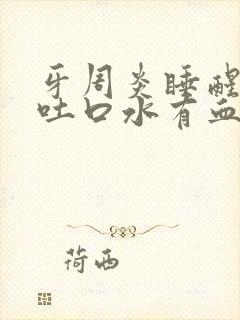 牙周炎睡醒
吐口水有血
荷西